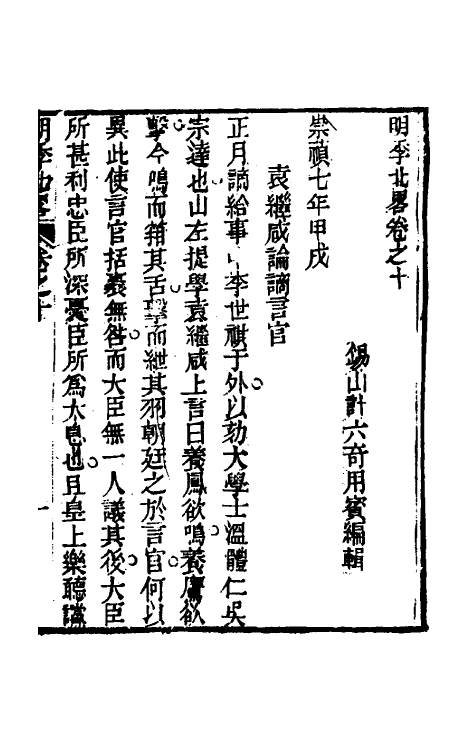 明季北畧卷之十
錫山計六奇用賓編輯
崇禎七年甲戌
袁繼咸論謫言官
正月謫給事中李世祺于外以劾大學士溫體仁吳
宗達也山左提學袁繼咸上言曰養鳳欲鳴養鷹欲
擊今鳴而箝其舌擊而紲其羽朝廷之於言官何以
異此使言官括囊無咎而大臣無一人議其後大臣
所甚利忠臣所深憂臣所為太息也且皇上樂聽讜
明季北畧 卷之十 一